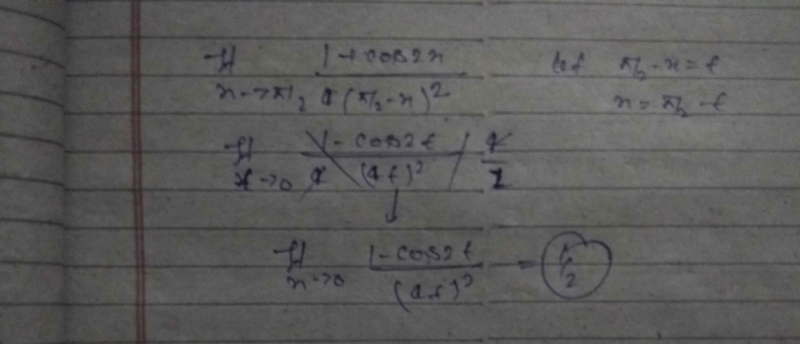 lt x→π/2 (1+cos2x)/(4(π/2-x)²) let π/2-x=t
x=π/2-t
lt x→0 1-cos2t / (4t)²
lt x→0 (1-cos2t)/(4t)² = 1/2